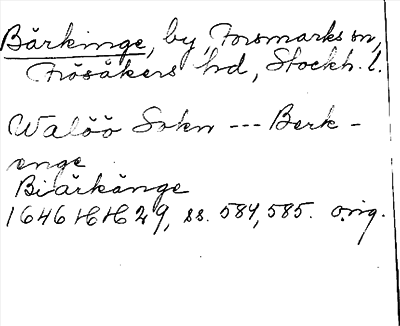 Bärkinge, by, Forsmarks sn,
Frösåkers hd, Stockh. l.
Walöö Sokn --- Berk-
enge
Biärkänge
1646 HH 29, ss. 584, 585. orig.